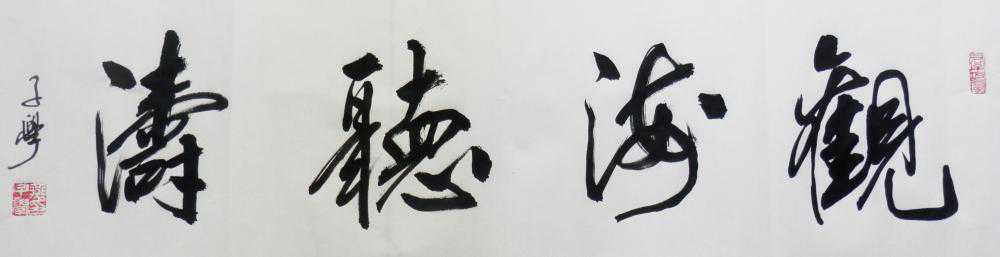 觀海聽濤
子學